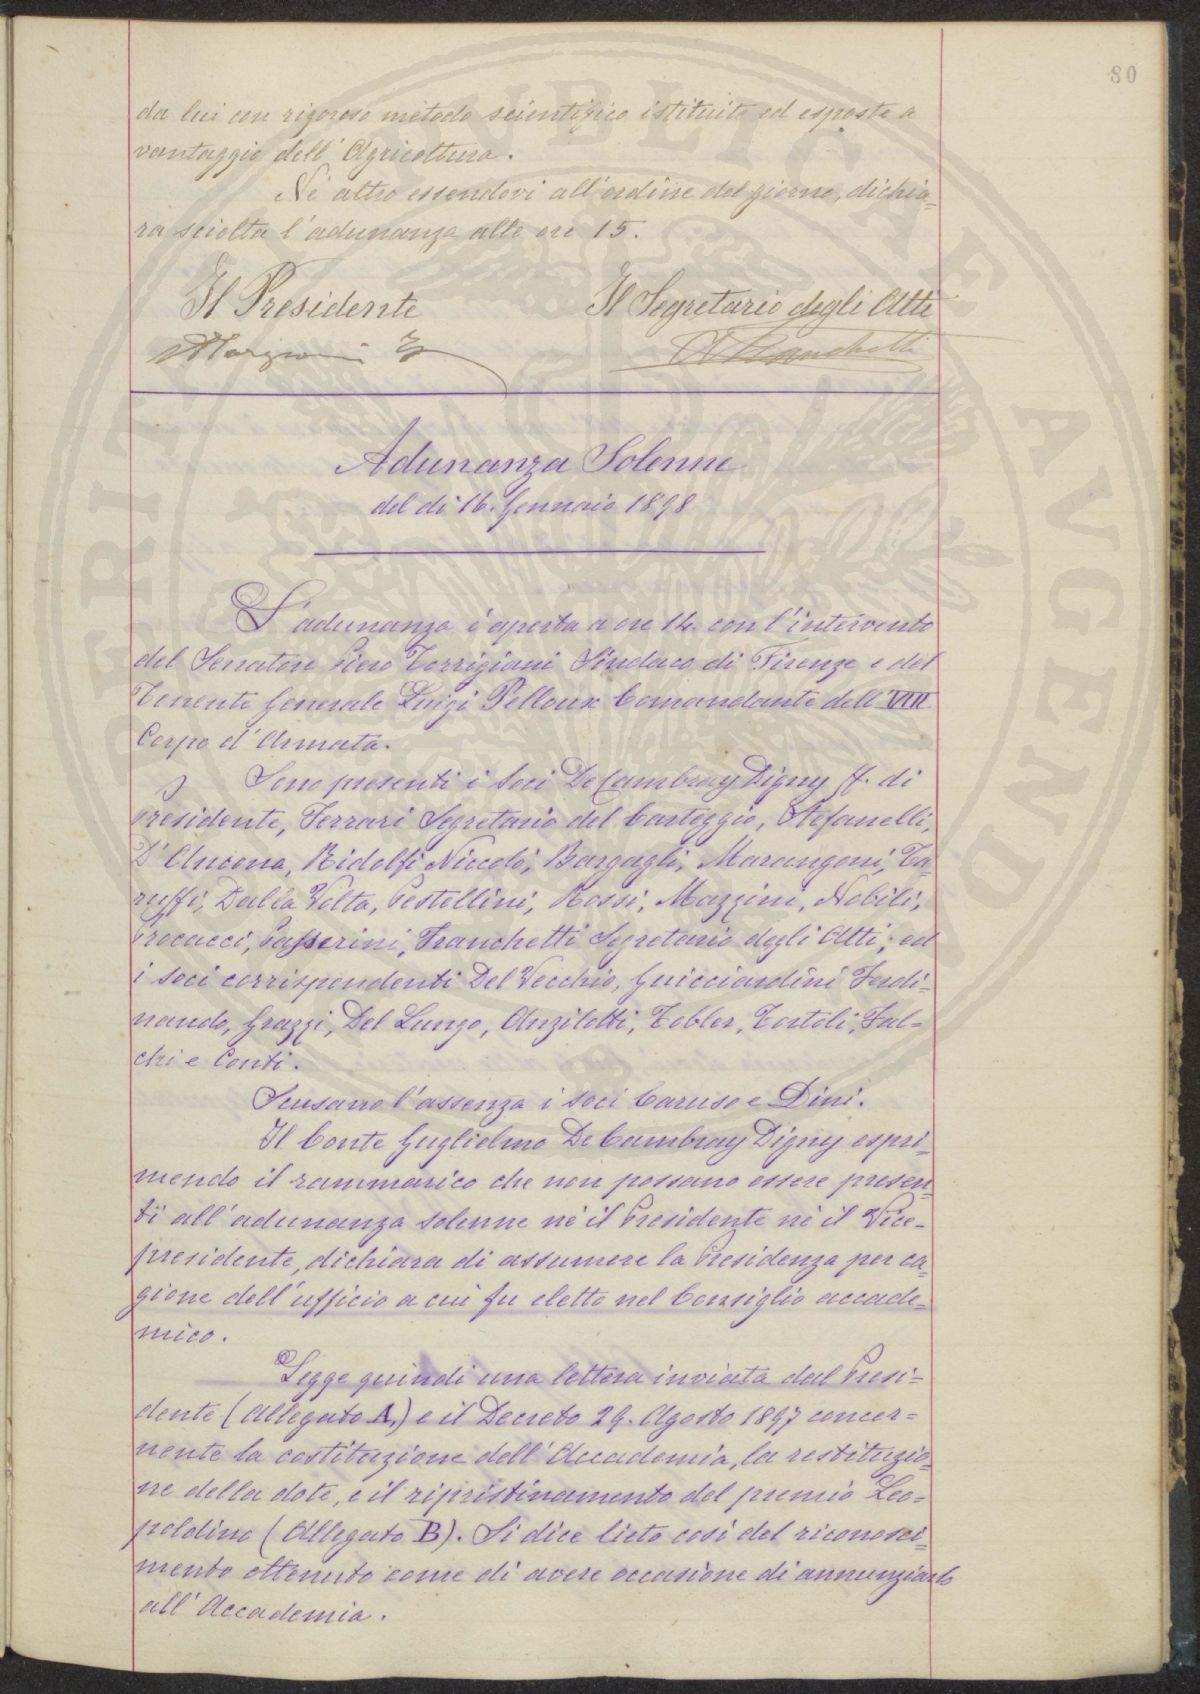 80
da lui con rigoroso metodo scientifico istituite ed esposte a
vantaggio dell'Agricoltura.
Nè altro essendovi all'ordine del giorno, dichia=
ra sciolta l'adunanza alle ore 15.
Il Presidente
Il Segretario degli Atti
Franchetti
Adunanza Solenne
del dì 16. Gennaio 1898
L'adunanza è aperta a ore 14. con l'intervento
del Senatore Piero Torrigiani Sindaco di Firenze e del
Tenente Generale Luigi Pelloux Comandante dell'VIII
Corpo d'Armata.
Sono presenti i Soci De Cambray Digny ff. di
Presidente, Ferrari Segretario del Carteggio, Stefanelli,
D'Ancona, Ridolfi Niccolò, Bargagli, Marangoni, Ta=
ruffi, Dalla Volta, Pestellini, Rossi, Mazzini, Nobili,
Procacci, Passerini, Franchetti Segretario degli Atti; ed
i soci corrispondenti Del Vecchio, Guicciardini Ferdi=
nando, Grazzi, Del Lungo, Anzilotti, Tobler, Tortoli, Fal=
chi e Conti.
Scusano l'assenza i soci Caruso e Dini.
Il Conte Guglielmo De Cambray Digny espri=
mendo il rammarico che non possano essere presen=
ti all'adunanza solenne nè il Presidente nè il Vice=
presidente, dichiara di assumere la Presidenza per ca=
gione dell'ufficio a cui fu eletto nel Consiglio accade=
mico.
Legge quindi una lettera inviata dal Presi=
dente (Allegato A,) e il Decreto 29. Agosto 1897 concer=
nente la costituzione dell'Accademia, la restituzio=
ne della dote, e il ripristinamento del premio Leo=
poldino (Allegato B). Si dice lieto così del riconosci=
mento ottenuto come di avere occasione di annunziarlo
all'Accademia.